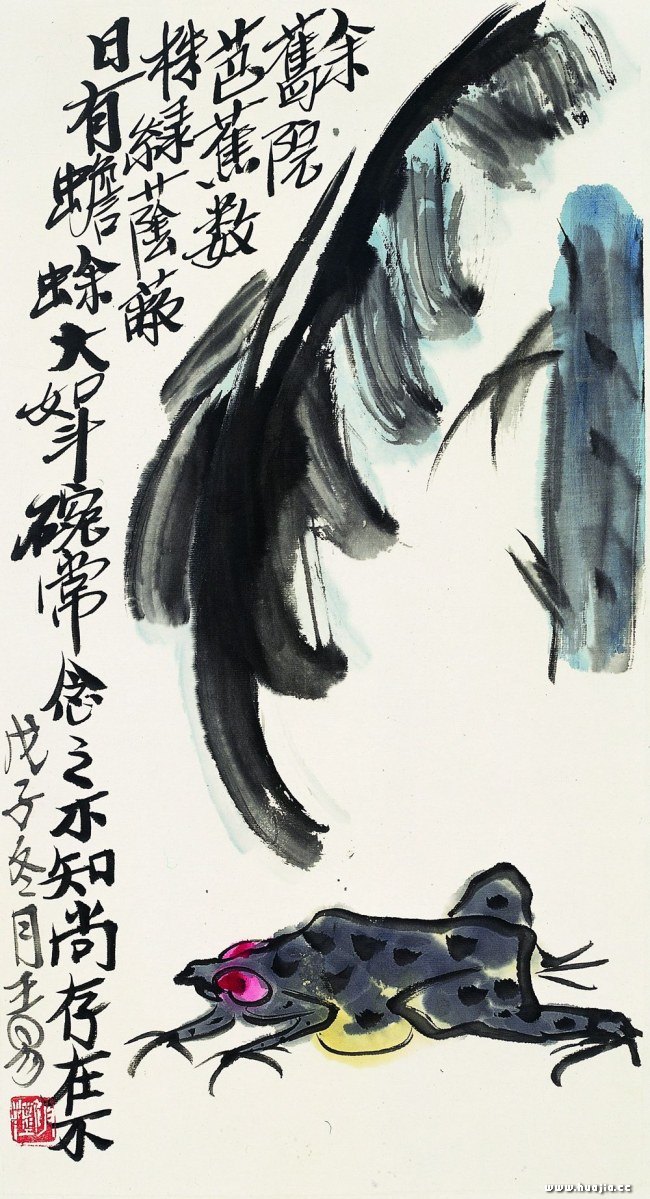 余
舊院
芭蕉数
株緑蔭蔽
日有蟾蜍大如斗碗常念之不知尚存在不
戊子冬月王易
www.huajia.cc